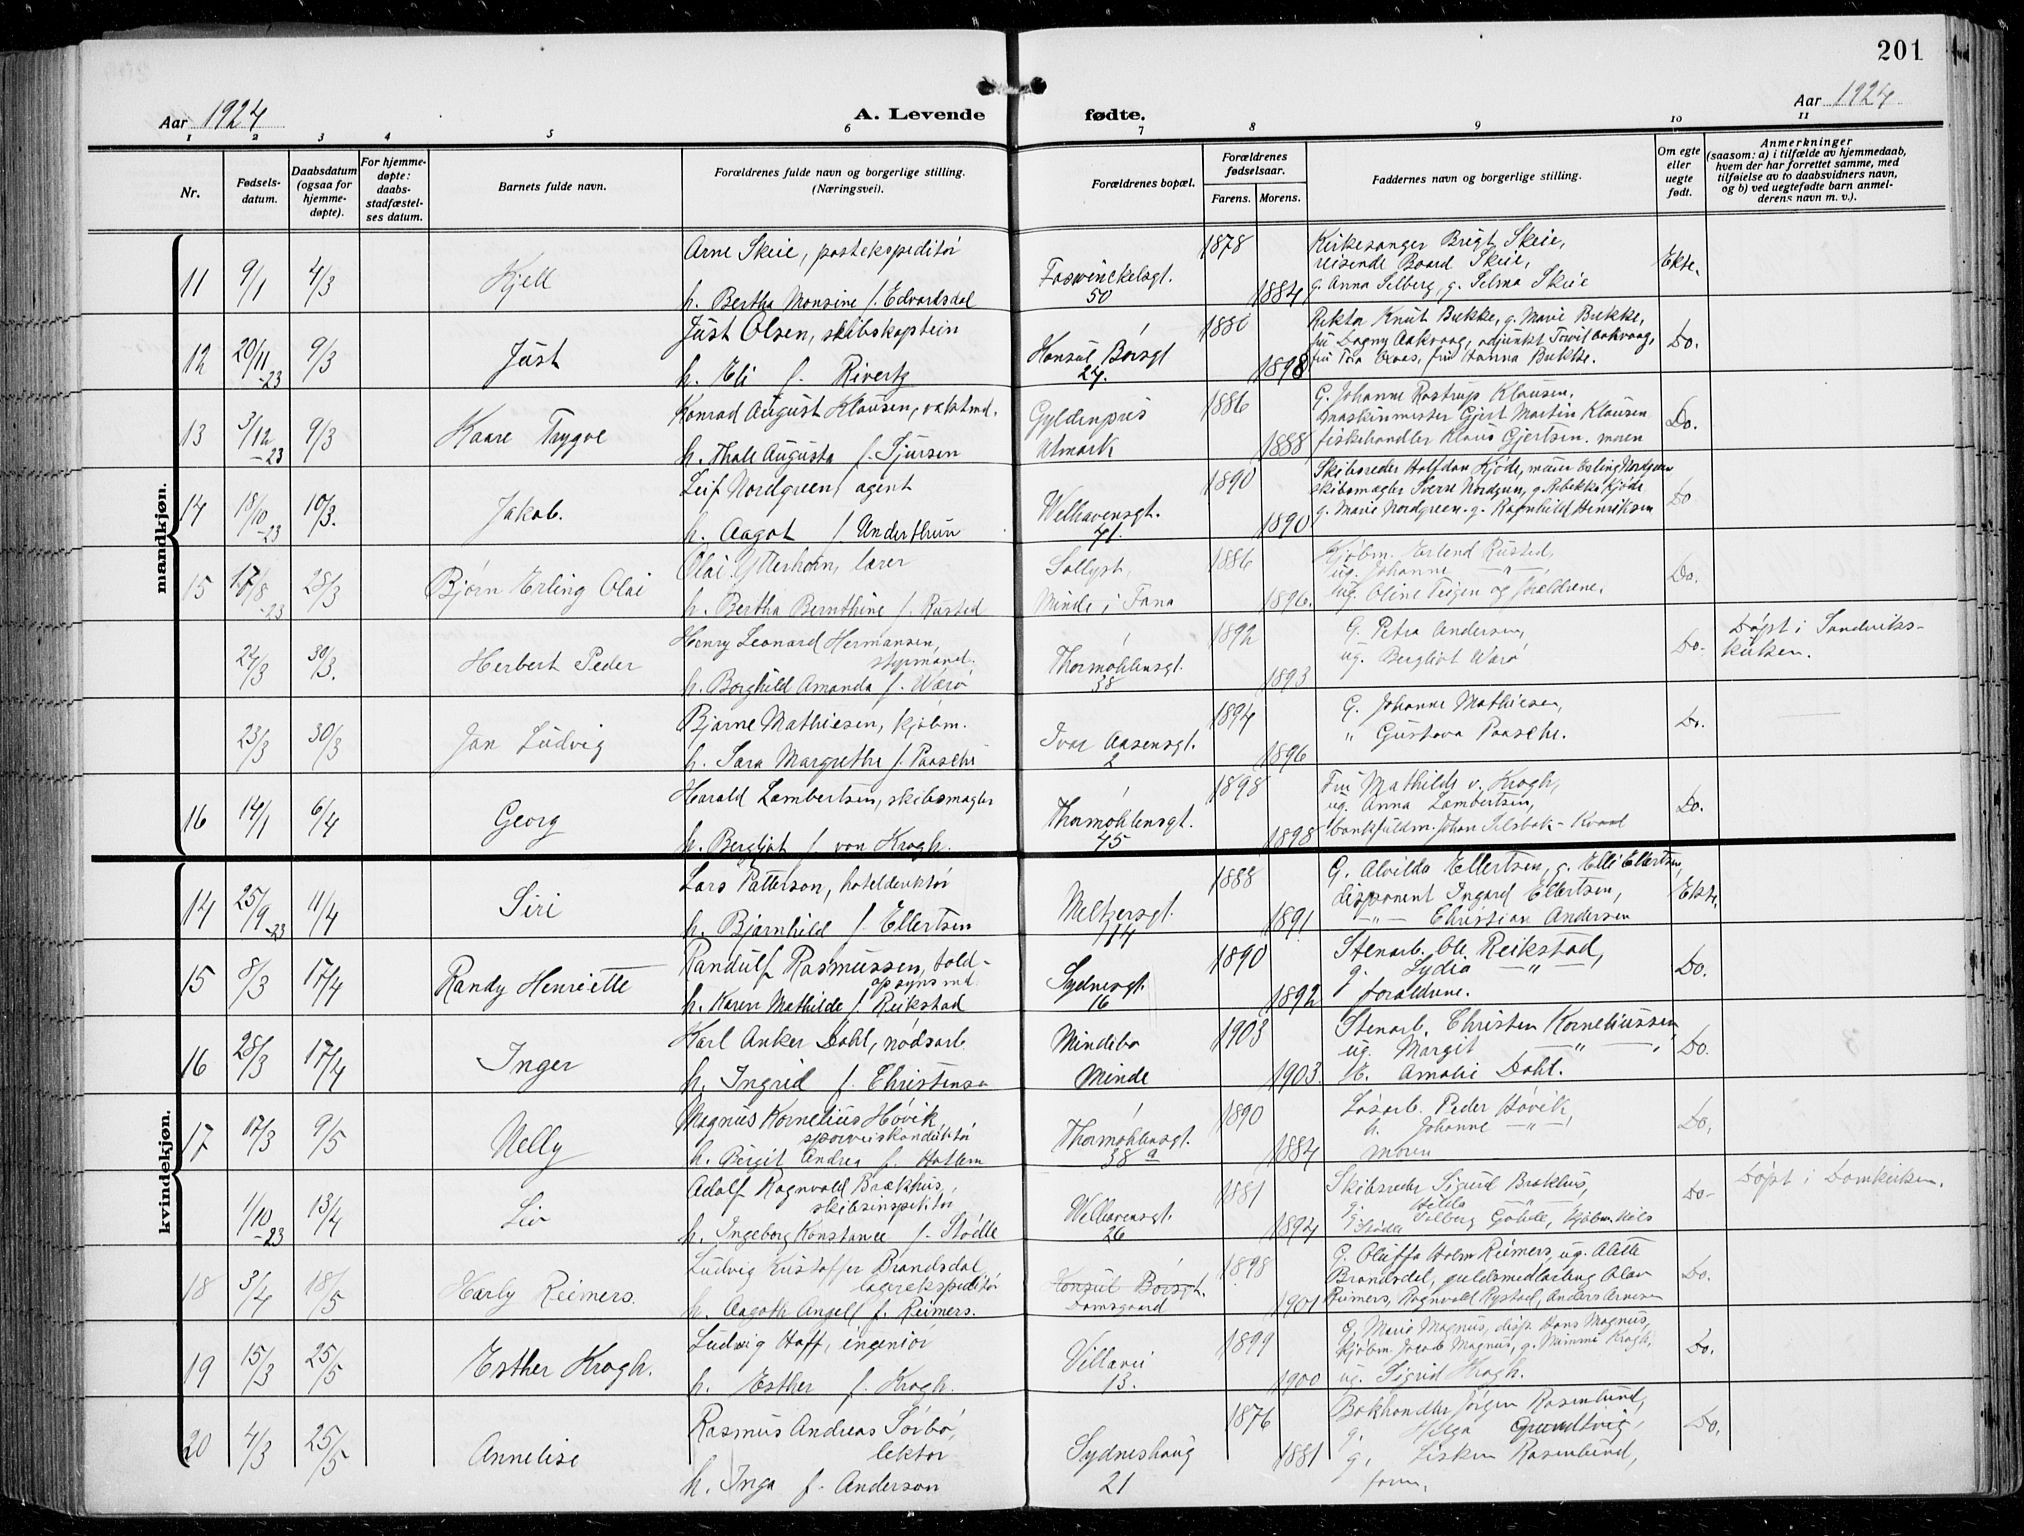 201
Aar 1924
A. Levende fødte.
Aar 1924
1 2 3 4 5 6 7 8 9 10 11
Nr.
Fødsels-
datum.
Daabsdatum
(ogsaa for
hjemme-
døpte).
For hjemme-
døpte:
daabs-
stadfæstel-
ses datum.
Barnets fulde navn.
Forældrenes fulde navn og borgerlige stilling.
(Næringsvei).
Forældrenes bopæl.
Forældrenes
fødselsaar.
Farens. Morens.
Faddernes navn og borgerlige stilling.
Om egte
eller
uegte
født.
Anmerkninger
(saasom: a) i tilfælde av hjemmedaab,
hvem der har forrettet samme, med
tilføielse av to daabsvidners navn,
og b) ved uegtefødte barn anmel-
derens navn m. v.).
mandkjøn.
11 9/1 4/3 Kjell
Arne Skeie, postekspeditør
h. Bertha Monsine f. Edvardsdal
Foswinckelsgt.
50
1878 1884
Kirkesanger Brigt Skeie,
reisende Baard Skeie,
g. Anna Selberg, g. Selma Skeie
Ekte.
12 20/11-23 9/3 Just
Just Olsen, skibskaptein
h. Eli f. Rivertz
Konsul Børsgt
27.
1880 1898
Rektor Knut Bukke, g. Marie Bukke,
fru Dagny Aakvaag, adjunkt Aakvaag,
fru Hanna Bukke.
Do.
13 3/12-23 9/3 Kaare Trygve
Konrad August Klausen, vaktmd.
h. Thale Augusta f. Sjursen
Gyldenpris
Utmark
1886 1888
G. Johanne Rostrup Klausen,
maskinmester Gjert Martin Klausen
fiskehandler Klaus Gjertsen. moren
Do.
14 18/10-23 10/3. Jakob.
Leif Nordgreen, agent
h. Aagot f. Underthun
Welhavensgt.
71.
1890 1890
Skibsreder Halfdan Kjøde, murer Erling Nordgreen
skibsmægler Sverre Nordgreen, g. Rebekka Kjøde
g. Marie Nordgreen. g. Ragnhild Henriksen
Do
15 17/8-23 23/3 Bjørn Erling Olai
Olai Ytterhorn, lærer
h. Bertha Bernthine f. Rusted
Sollyst,
Minde i Fana
1886 1896.
Kjøbm. Erlend Rusted,
ug. Johanne — " —,
ug. Oline Teigen og forældrene.
Do.
24/3 30/3. Herbert Peder
Henry Leonard Hermansen,
styrmand.
h. Borghild Amanda f. Værø
Thormøhlensgt.
38
1892 1893
G. Petra Andersen,
ug. Bergliot Værø
Do.
Døpt i Sandviks-
kirken.
23/3 30/3 Jan Ludvig
Bjarne Mathiesen, kjøbm.
h. Sara Margrethe f. Paasche
Ivar Aasensgt.
2
1894 1896
G. Johanne Mathiesen,
" Gustava Paasche.
Do.
16 14/1 6/4 Georg
Harald Lambertsen, skibsmægler
h. Bergljot f. von Krogh.
Thormøhlensgt.
45
1898 1898
Fru Mathilde v. Krogh,
ug. Anna Lambertsen,
bankfuldm. Johan Selsbak-Kvaal
Do.
kvindekjøn.
14 25/9-23 11/4 Siri
Lars Patterson, hoteldirektør
h. Bjørnhild f. Ellertsen
Meltzersgt.
114
1888 1891
G. Alvilda Ellertsen, g. Elli Ellertsen,
disponent Ingard Ellertsen,
— " — Christian Andersen
Ekte.
15 8/3 17/4 Randy Henriette
Randulf Rasmussen, told-
opsynsmd.
h. Karen Mathilde f. Reikstad
Sydnesgt.
16
1890 1892
Stenarb. Ole Reikstad,
g. Lydia — " —,
forældrene.
Do.
16 28/3 17/4 Inger
Karl Anker Dahl, nødsarb.
h. Ingrid f. Christensen
Mindebo
Minde
1903 1903.
Stenarb. Christen Korneliussen
ug. Margit — " —,
E. Amalie Dahl.
Do.
17 17/3 9/5 Nelly
Magnus Kornelius Høvik
sporveiskonduktør
h. Bergit Andrea f. Hatlem
Thormøhlensgt.
38 a
1890 1884
Løsarb. Peder Høvik,
h. Johanne — " —,
moren
Do.
1/10-23 13/4 Liv
Adolf Ragnvald Brækhus,
skibsinspektør
h. Ingeborg Konstance f. Stødle
Welhavensgt.
26
1881 1894
Skibsreder Sigurd Brækhus,
g. Hilda — " —
Do-
Døpt i Domkirken.
18 3/4 18/5 Harly Reimers.
Ludvig Kristoffer Brandsdal,
lagerekspeditør
h. Aagoth Angell f. Reimers.
Konsul Børsgt.
Damsgaard
1898 1901
G. Oluffa Holm Reimers, ug. Alette
Brandsdal, guldsmedlærling Olav
Reimers, Ragnvald Rystad, Anders Arnesen
Do.
19 15/3 25/5 Esther Krogh.
Ludvig Hoff, ingeniør
h. Esther f. Krogh.
Villavei
13.
1899 1900
G. Marie Magnus, disp. Hans Magnus,
kjøbm. Jacob Magnus, g. Mimmi Krogh,
ug. Sigrid Krogh.
Do.
20 4/3 25/5 Annelise
Rasmus Andreas Sørbø,
lektor
h. Inga f. Anderson
Sydneshaug
21
1876 1881
Bokhandler Jørgen Rosenlund,
g. Helga Grundtvig,
g. Lisken Rosenlund,
faren.
Do.